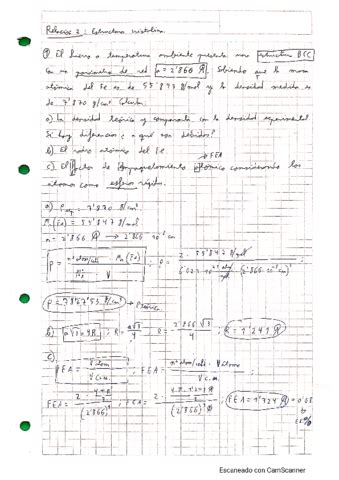 Relación 2: Estructura cristalina.
① El hierro a temperatura ambiente presenta una estructura BCC
con un parámetro de red a = 2'866 Å. Sabiendo que la masa
atómica del Fe es de 55'847 g/mol y la densidad medida es
de 7'870 g/cm³. Calcular:
a) La densidad teórica y compararla con la densidad experimental
Si hay diferencias ¿a qué son debidas?
b) El radio atómico del Fe
→ FEA
c) El Factor de Empaquetamiento Atómico considerando los
átomos como esferas rígidas.
a) ρexp = 7'870 g/cm³
(Fe) = 55'847 g/mol
a = 2'866 Å → 2'866 · 10⁻⁸ cm
ρ = nº átom/celda · (Fe) / V ; ρ = 2 · 55'847 g/mol / 6'023 · 10²³ · (2'866 · 10⁻⁸ cm)³
→ Teórica
b) a√3 = 4R ; R = a√3 / 4 ; R = 2'866 √3 / 4 ; R = 1'241 Å
c)
FEA = V átom / V c.u. ; FEA = nº átom/celda · V átomo / V c.u.
FEA = ; FEA = ; = 0'68
Escaneado con CamScanner